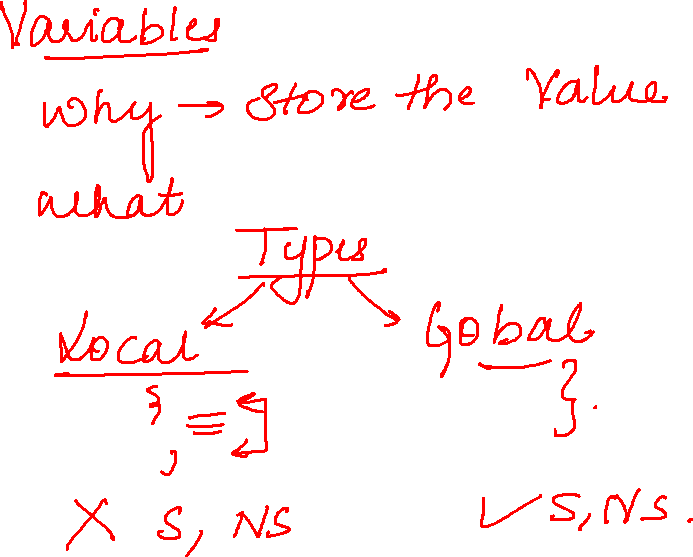 Variables
why → Store the Value
what
Types
Local Gobal
{ }.
}
X S, NS ✓ S, NS.